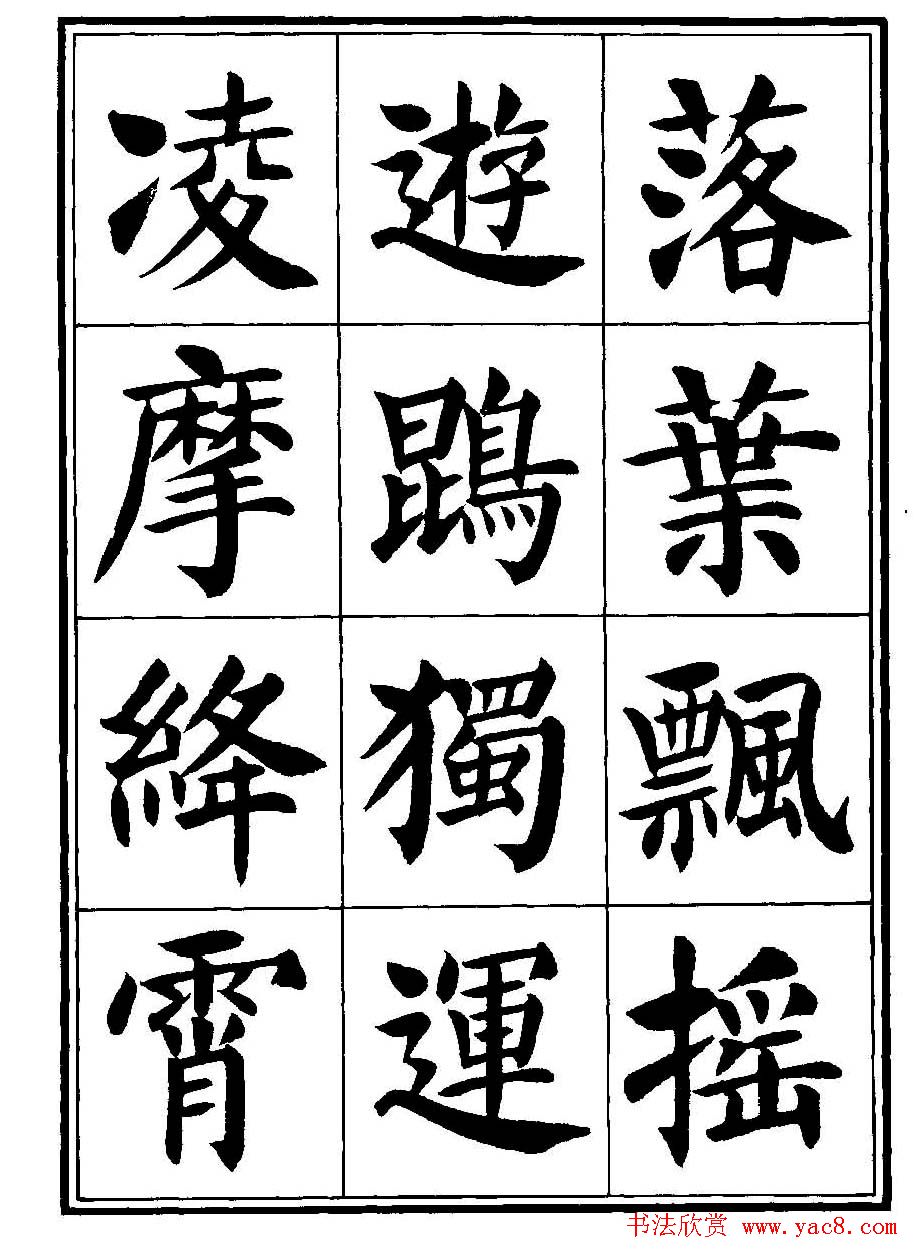 落葉飄摇
遊鵾獨運
凌摩絳霄
书法欣赏 www.yac8.com